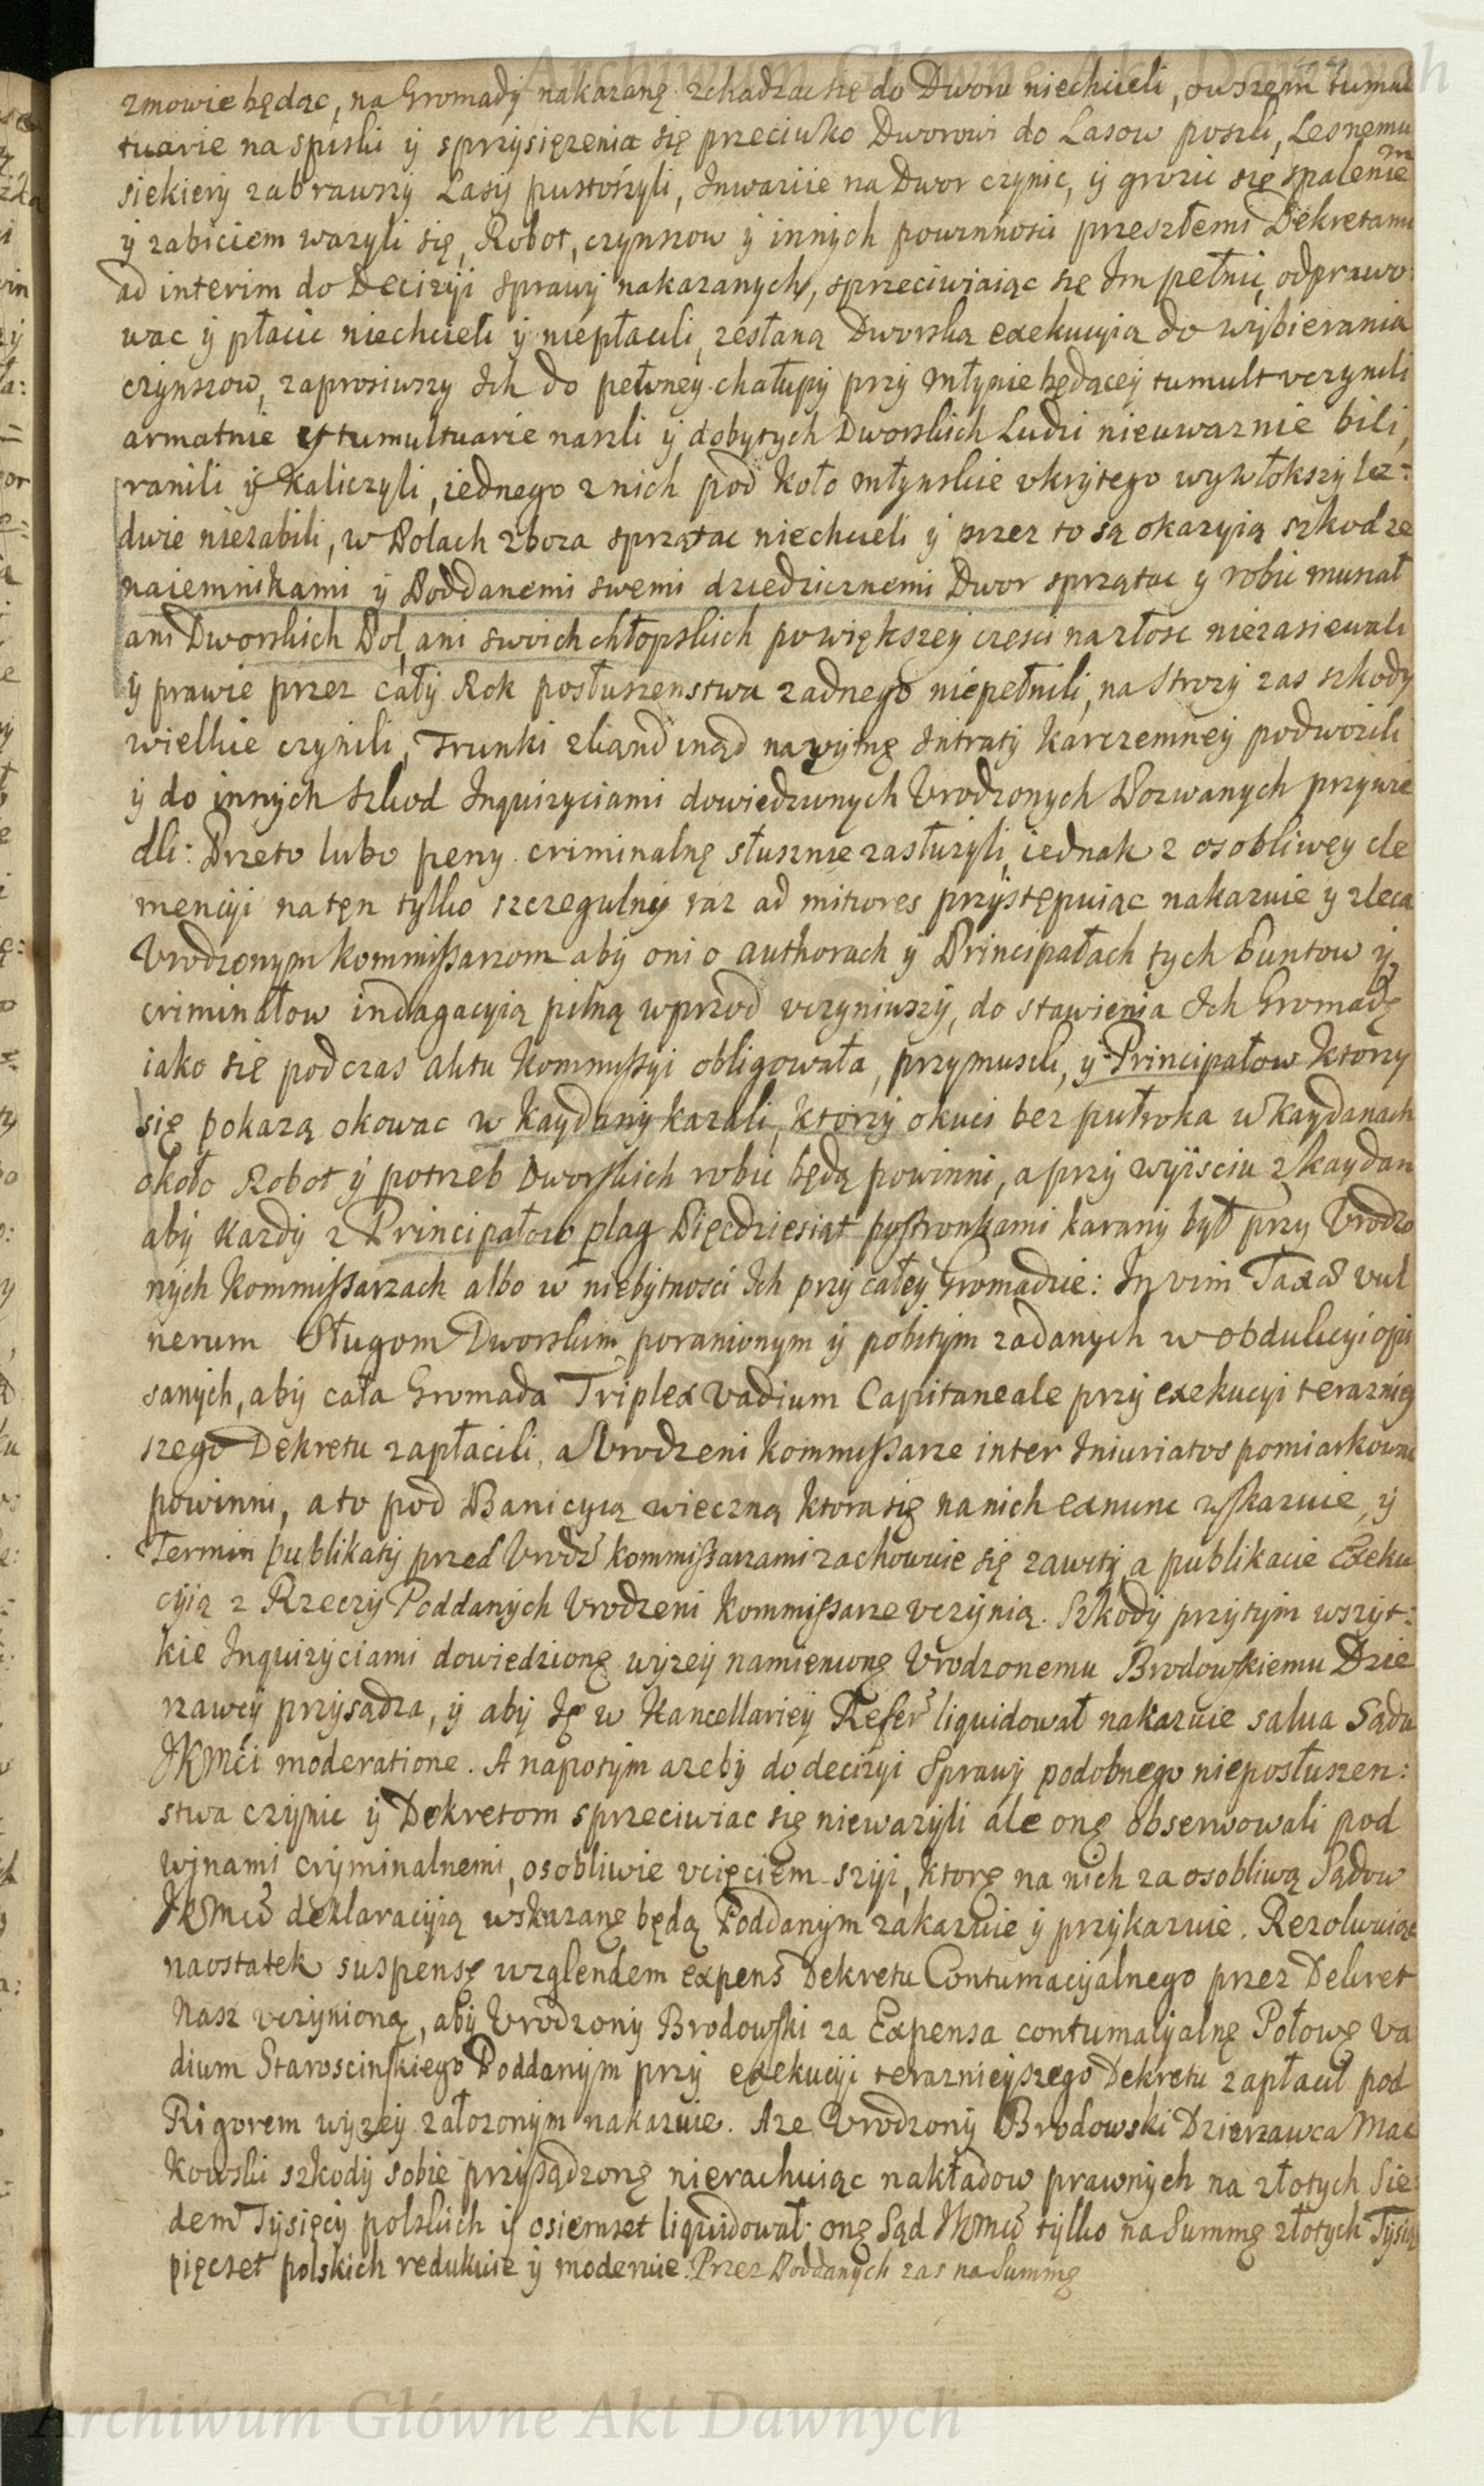 Archiwum Główne Akt Dawnych
zmowie będąc, na Gromadÿ nakazanę zchadzac się do Dworu niechcieli, owszem tumul
tuarie na spiski ÿ sprzysięzenia się przeciwko Dworowi do Lasow poszli, Lesnemu
siekierÿ zabrawszÿ Lasÿ pustoszyli, Inwaziie na Dwor czynic, ÿ grozic się spaleniem
ÿ zabiciem wazyli się, Robot, czynszow ÿ innych powinnosci przeszłemi Dekretami
ad interim do Decizÿi sprawÿ nakazanych, sprzeciwiaiąc się Im pełnic, odprawo
wac ÿ płacic niechcieli ÿ niepłacili, zesłaną Dworską exekucyią do wÿbierania
czÿnszow, zaprosiwszy Ich do pewney chałupÿ przÿ Młÿnie będącey tumult vczynili
armatnie et tumultuarie naszli ÿ dobytych Dworskich Ludzi nieuwaznie bili,
ranili ÿ kaliczyli, iednego z nich pod koło młynskie vkrÿtego wywłokszÿ lez:
dwie niezabili, w Polach zboza sprzątac niechcieli ÿ przez to są okazyią szkod ze
naiemnikami ÿ Poddanemi swemi dziedzicznemi Dwor sprzątac ÿ robic musiał
ani Dworskich Pol, ani swoich chłopskich powiększeÿ częsci na złosc niezasiewali
ÿ prawie przez całÿ Rok posłuszenstwa zadnego niepełnili, na Strozÿ zas szkody
wielkie czynili, Trunki zkąnd inąd na wÿtnę Intratÿ karczemneÿ podwozili
ÿ do innych szkod Inquizyciami dowiedzionych Vrodzonych Pozwanych przywie
dli: Przeto lubo peny criminalnę słusznie zasłuzyli, iednak z osobliwey cle
mencÿi na tęn tylko szczegulnÿ raz ad mitiores przÿstępuiąc nakazuie y zleca
Vrodzonym Kommissarzom abÿ oni o authorach ÿ Principałach tych buntow ÿ
criminałow indagacyią pilną wprzod vczyniwszÿ, do stawienia Ich Gromadę
iako się podczas aktu Kommissÿi obligowała, przymusili, ÿ Principałow ktorzy
się pokazą okowac w Kaÿdanÿ kazali, ktorzÿ okuci bez pułroka w kaydanach
około Robot ÿ potrzeb Dworskich robic będą powinni, a przÿ wÿisciu z kaÿdan
abÿ kazdÿ z Principałow plag Pięcdziesiąt postronkami karanÿ był przy Vrodzo
nÿch Kommissarzach albo w niebÿtnosci Ich przÿ całeÿ Gromadzie: In vim Taxae vul
nerum Sługom Dworskim poranionym ÿ pobitÿm zadanych w obdukcÿi opi
sanÿch, abÿ cała Gromada Triplex Vadium Capitaneale przÿ exekucyi terazniey
szego Dekretu zapłacili, a Vrodzeni Kommissarze inter Iniuriatos pomiarkowac
powinni, a to pod Banicyią wieczną ktora się na nich exnunc wskazuie, ÿ
Termin publikatÿ przed Vrodz Kommissarzami zachowuie się zawitÿ, a publikacie Exeku
cÿią z Rzeczÿ Poddanÿch Vrodzeni Kommissarze vczÿnią. Szkodÿ przÿtÿm wszÿt:
kie Inquizÿciami dowiedzionę wÿzeÿ namienionę Vrodzonemu Brodowskiemu Dzie
rzawcÿ przÿsądza, ÿ abÿ Ię w Kancellarieÿ Refer liquidował nakazuie salva Sądu
JKMci moderatione. A napotÿm azebÿ do decizÿi Sprawÿ podobnego nieposłuszen:
stwa czÿnic ÿ Dekretom sprzeciwiac się niewazÿli ale onę obserwowali pod
winami crÿminalnemi, osobliwie vcięciem szÿi, ktorę na nich za osobliwą Sądow
JKMci deklaracÿią wskazanę będą Poddanÿm zakazuie ÿ przÿkazuie. Rezolwuiąc
naostatek suspensę wzglendem expens Dekretu Contumacÿalnego przez Dekret
Nasz vczÿnioną, abÿ Vrodzonÿ Brodowski za Expensa contumacÿalnę Połowę Va
dium Staroscinskiego Poddanÿm przÿ exekucÿi terazniejszego Dekretu zapłacił pod
Rigorem wyzeÿ załozonÿm nakazuie. A ze Vrodzonÿ Brodowski Dzierzawca Mac
kowski szkodÿ sobie przÿsądzonę nierachuiąc nakładow prawnÿch na złotych Sie
dem Tÿsięcÿ polskich ÿ osiemset liquidował: onę Sąd JKMci tylko na Summę złotych Tÿsiąc
pięcset polskich redukuie ÿ moderuie. Przez Poddanych zas na Summę
Archiwum Główne Akt Dawnych